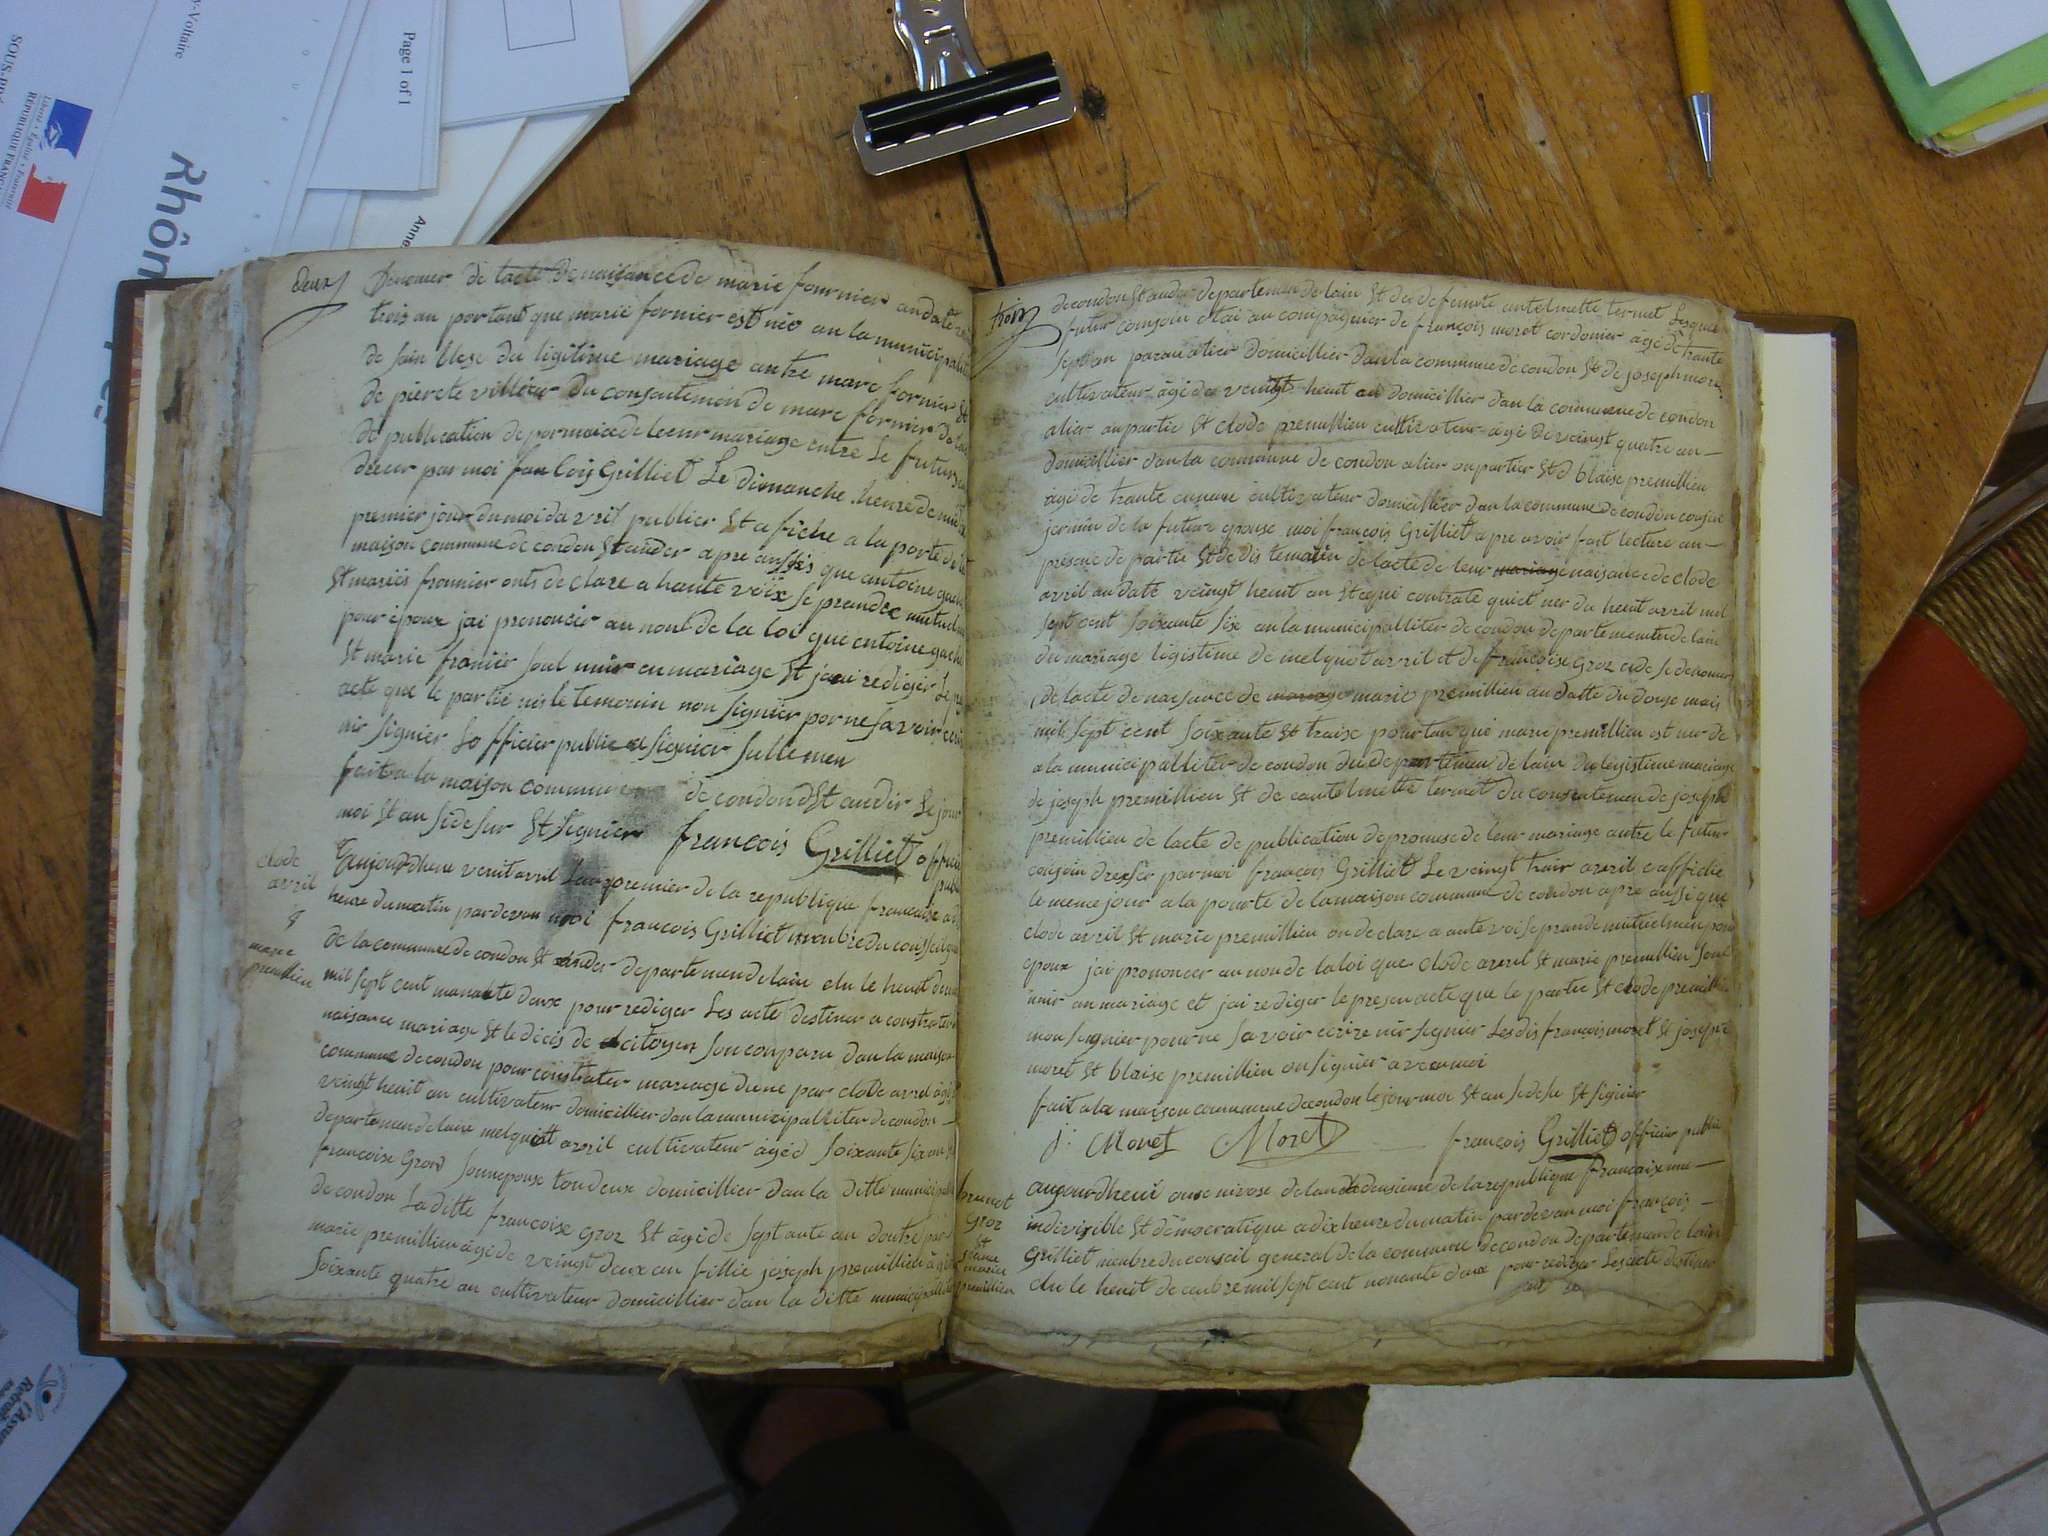 -Voltaire
SOUS-PR
Liberté • Égalité • Fraternité
RÉPUBLIQUE FRANÇA
Page 1 of 1
Rhôn
Anne
deux
de lacte de naisance de marie fournier an date
trois an portant que marie fornier est née an la municipalit
de sain du ligitime mariage antre marc fornier et
de pierete villier du consentemen de marc fornier de
de publication de de leeur mariage entre le futurs
par moi Grilliet Le dimanche heure de
premier jour du moi davril publier St afiche a la porte de la
maison commune de condon St ander apre ausis que antoine
St mariés fronnier onts de clare a haute voix se prandre mutuel
pour époux jai prenoncér au nont de la loi que entoine
St marie fronier sont unir en mariage St jai rediger Le
acte que le partie nis le temonin non signier por ne savoir
nir signier Lofficier public a signier sullemen
fait a la maison commune de condon dSt andir Le jour
moi St an sede sur St signier francois Grilliet offici
publ
clode
avril
&
marie
premillieu
aujourdheui avril Lan premier de la republique francaise a
heure du matin par devan moi francois Grilliet manbre du conseil
de la commune de condon St ander departemen de lain elu le heuit
mil sept cent nonante deux pour rediger Les acte destiner a constrater
naisance mariage St le décés de citoyen son conparu dan la maison
commune de condon pour constrater mariage dune par clode avril agé
veingt heuit an cultivateur domicillier dan la municipalliter de condon
departemen de laine melquiot avril cultivateur agéd soixante six an
francoise Groz sonnepouse tondeux domicillier dan la ditte municipal
de condon La ditte francoise Groz St agé de septante an doutre par
marie premillieu agé de veingt deux an fillie joseph premillieu agé
soixante quatre an cultivateur domicillier dan la ditte municipalliter
trois
de condon St andir departemen de lain St de defeunte antelmette termet Lesque
futur conjoin etai au compagnier de françois moret cordonier agé de trante
sept an domicillier dan la commune de condon St de joseph more
cultivateur agé de veingt heuit an domicillier dan la commune de condon
alier an partie St clode premillieu cultivateur agé de veingt quatre an
domicillier dan la commune de condon alier an partier St d blaise premillieu
agé de trante cultivateur domicillier dan la commune de condon
jermin de la future epouse moi françois Grilliet apre avoir fait lecture an
presence de partie St de dis temoin de lacte de leur mariage naisance de clode
avril an date veingt heuit an St a qui contrate quiet ner du heuit avril mil
sept cent soixante six an la municipalliter de condon departementer de lain
du mariage ligistime de melquot avril et de francoise Groz
de lacte de naisance de mariage marie premillieu an datte du douse mais
mil sept cent soixante St traise pourtan que marie premillieu est ner de
a la municipalliter de condon du departemen de lain du legistime mariage
de joseph premillieu St de cantelmette termet du consentemen de joseph
premillieu de lacte de publication de promese de leur mariage antre le futur
conjoin dresser par moi françois Grilliet Le veingt avril affiche
le meme jour a la pourte de la maison commune de condon apre ausi que
clode avril St marie premillieu on declare a aute voi se prande mutuelmen pour
epoux jai prononcer au non de la loi que clode avril St marie premillieu sont
unir an mariage et jai rediger le presen acte que le partie St clode premillieu
non signier pour ne savoir ecrire nir signier Les dis françois moret St joseph
moret St blaise premillieu on signier avec moi
fait a la maison commune de condon le jour moi St an se de su St signier
j. Moret Moret françois Grilliet officier public
brunet
Groz
St
marie
premillieu
aujourdheui onse nivose de lan deusieme de la republique francaix une
indivisible St democratique a dix heure du matin par devan moi françois
Grilliet menbre du conseil general de la commune de condon departemen de lain
elu le heuit decenbre mil sept cent nonante deux pour rediger Les acte destiner